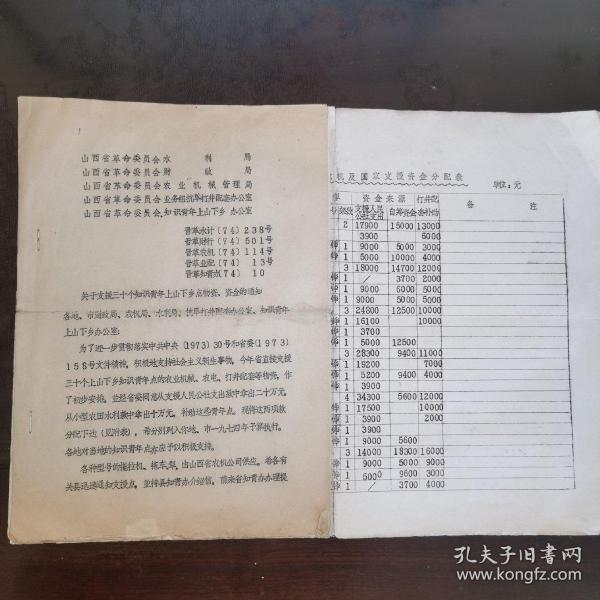 山西省革命委员会水利局
山西省革命委员会财政局
山西省革命委员会农业机械管理局
山西省革命委员会业务组抗旱打井配套办公室
山西省革命委员会知识青年上山下乡办公室
晋革水计(74)238号
晋革财行(74)501号
晋革农机(74)114号
晋革业配(74)13号
晋革知青点(74)10
关于支援三十个知识青年上山下乡点物资、资金的通知
各地、市财政局、农机局、水利局、抗旱打井配套办公室、知识青年
上山下乡办公室:
为了进一步贯彻落实中共中央(1973)30号和省委(1973)
158号文件精神,积极地支持社会主义新生事物,今年省直接支援
三十个上山下乡知识青年点的农业机械、农电、打井配套等物资,作
了初步安排,并经省委同意从支援人民公社支出款中拿出二十万元,
从小型农田水利款中拿出十万元,补助这些青年点。现将这两项款
分配下达(见附表),希分别列入你地、市一九七四年予算执行。
各地对当地的知识青年点亦应予以积极支持。
各种型号的拖拉机、拖车、犁,由山西省农机公司供应。希各有
关县迅速通知支援点,并持县知青办介绍信,前来省知青办办理提
机及国家支援资金分配表
单位:元
资金来源 备注
支援人民公社支出 自筹资金 打井配套补助
2 17900 15000 13000
3900 6000
1 9000 5000 3000
1 5000 10000 4000
3 18000 14700 12000
1 3900 3700 2000
1 9000 6000 5000
1 9000 5000 5000
3 24800 12500 10000
1 16100 10000
1 3700
1 5000 12500
3 28300 9400 11000
1 19200 7000
1 5200 9400 4000
1 3900
4 34300 5600 12000
1 17500 10000
1 3900 2000
1 3900
1 9000 5600
3 14000 18300 16000
1 9000 5000 9000
1 5000 9600 3000
1 / 3700 4000
孔夫子旧书网
www.kongfz.com